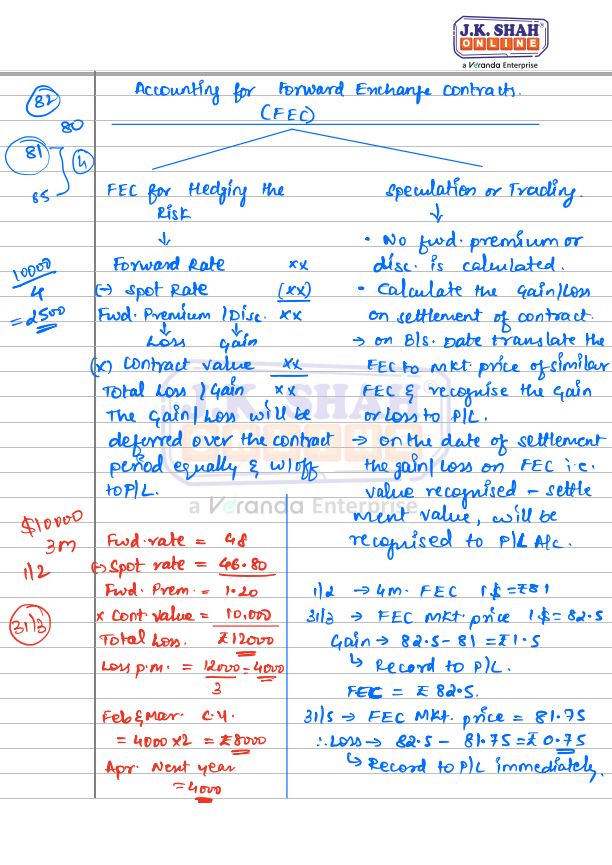 J.K. SHAH®
ONLINE
a Veranda Enterprise
Accounting for Forward Exchange Contracts.
(FEC)
82
80
81
4
85
10000
4
= 2500
FEC for Hedging the
Risk
↓
Forward Rate xx
(-) Spot Rate (xx)
Fwd. Premium / Disc. xx
↓ ↓
Loss Gain
(x) Contract value xx
Total Loss / Gain xx
The Gain/Loss will be
deferred over the contract
period equally & w/off
to P/L.
$10000
3m
1/2
31/3
Fwd. rate = 48
(-) Spot rate = 46.80
Fwd. Prem. = 1.20
x Cont value = 10,000
Total Loss. ₹12000
Loss p.m. = 12000 = 4000
3
Feb & Mar. C.Y.
= 4000 x 2 = ₹8000
Apr. Next year
= 4000
Speculation or Trading.
↓
• No fwd. premium or
disc. is calculated.
• Calculate the Gain/Loss
on settlement of contract.
→ on B/s. Date translate the
FEC to Mkt. price of similar
FEC & recognise the Gain
or Loss to P/L.
→ on the date of settlement
the gain/Loss on FEC i.e.
value recognised – settle
ment value, will be
recognised to P/L A/c.
1/2 → 4m. FEC 1$ = ₹81
31/3 → FEC Mkt. price 1$ = 82.5
Gain → 82.5 – 81 = ₹1.5
↳ Record to P/L.
FEC = ₹ 82.5.
31/5 → FEC Mkt. price = 81.75
∴ Loss → 82.5 – 81.75 = ₹ 0.75
↳ Record to P/L immediately.
J.K. SHAH®
ONLINE
a Veranda Enterprise